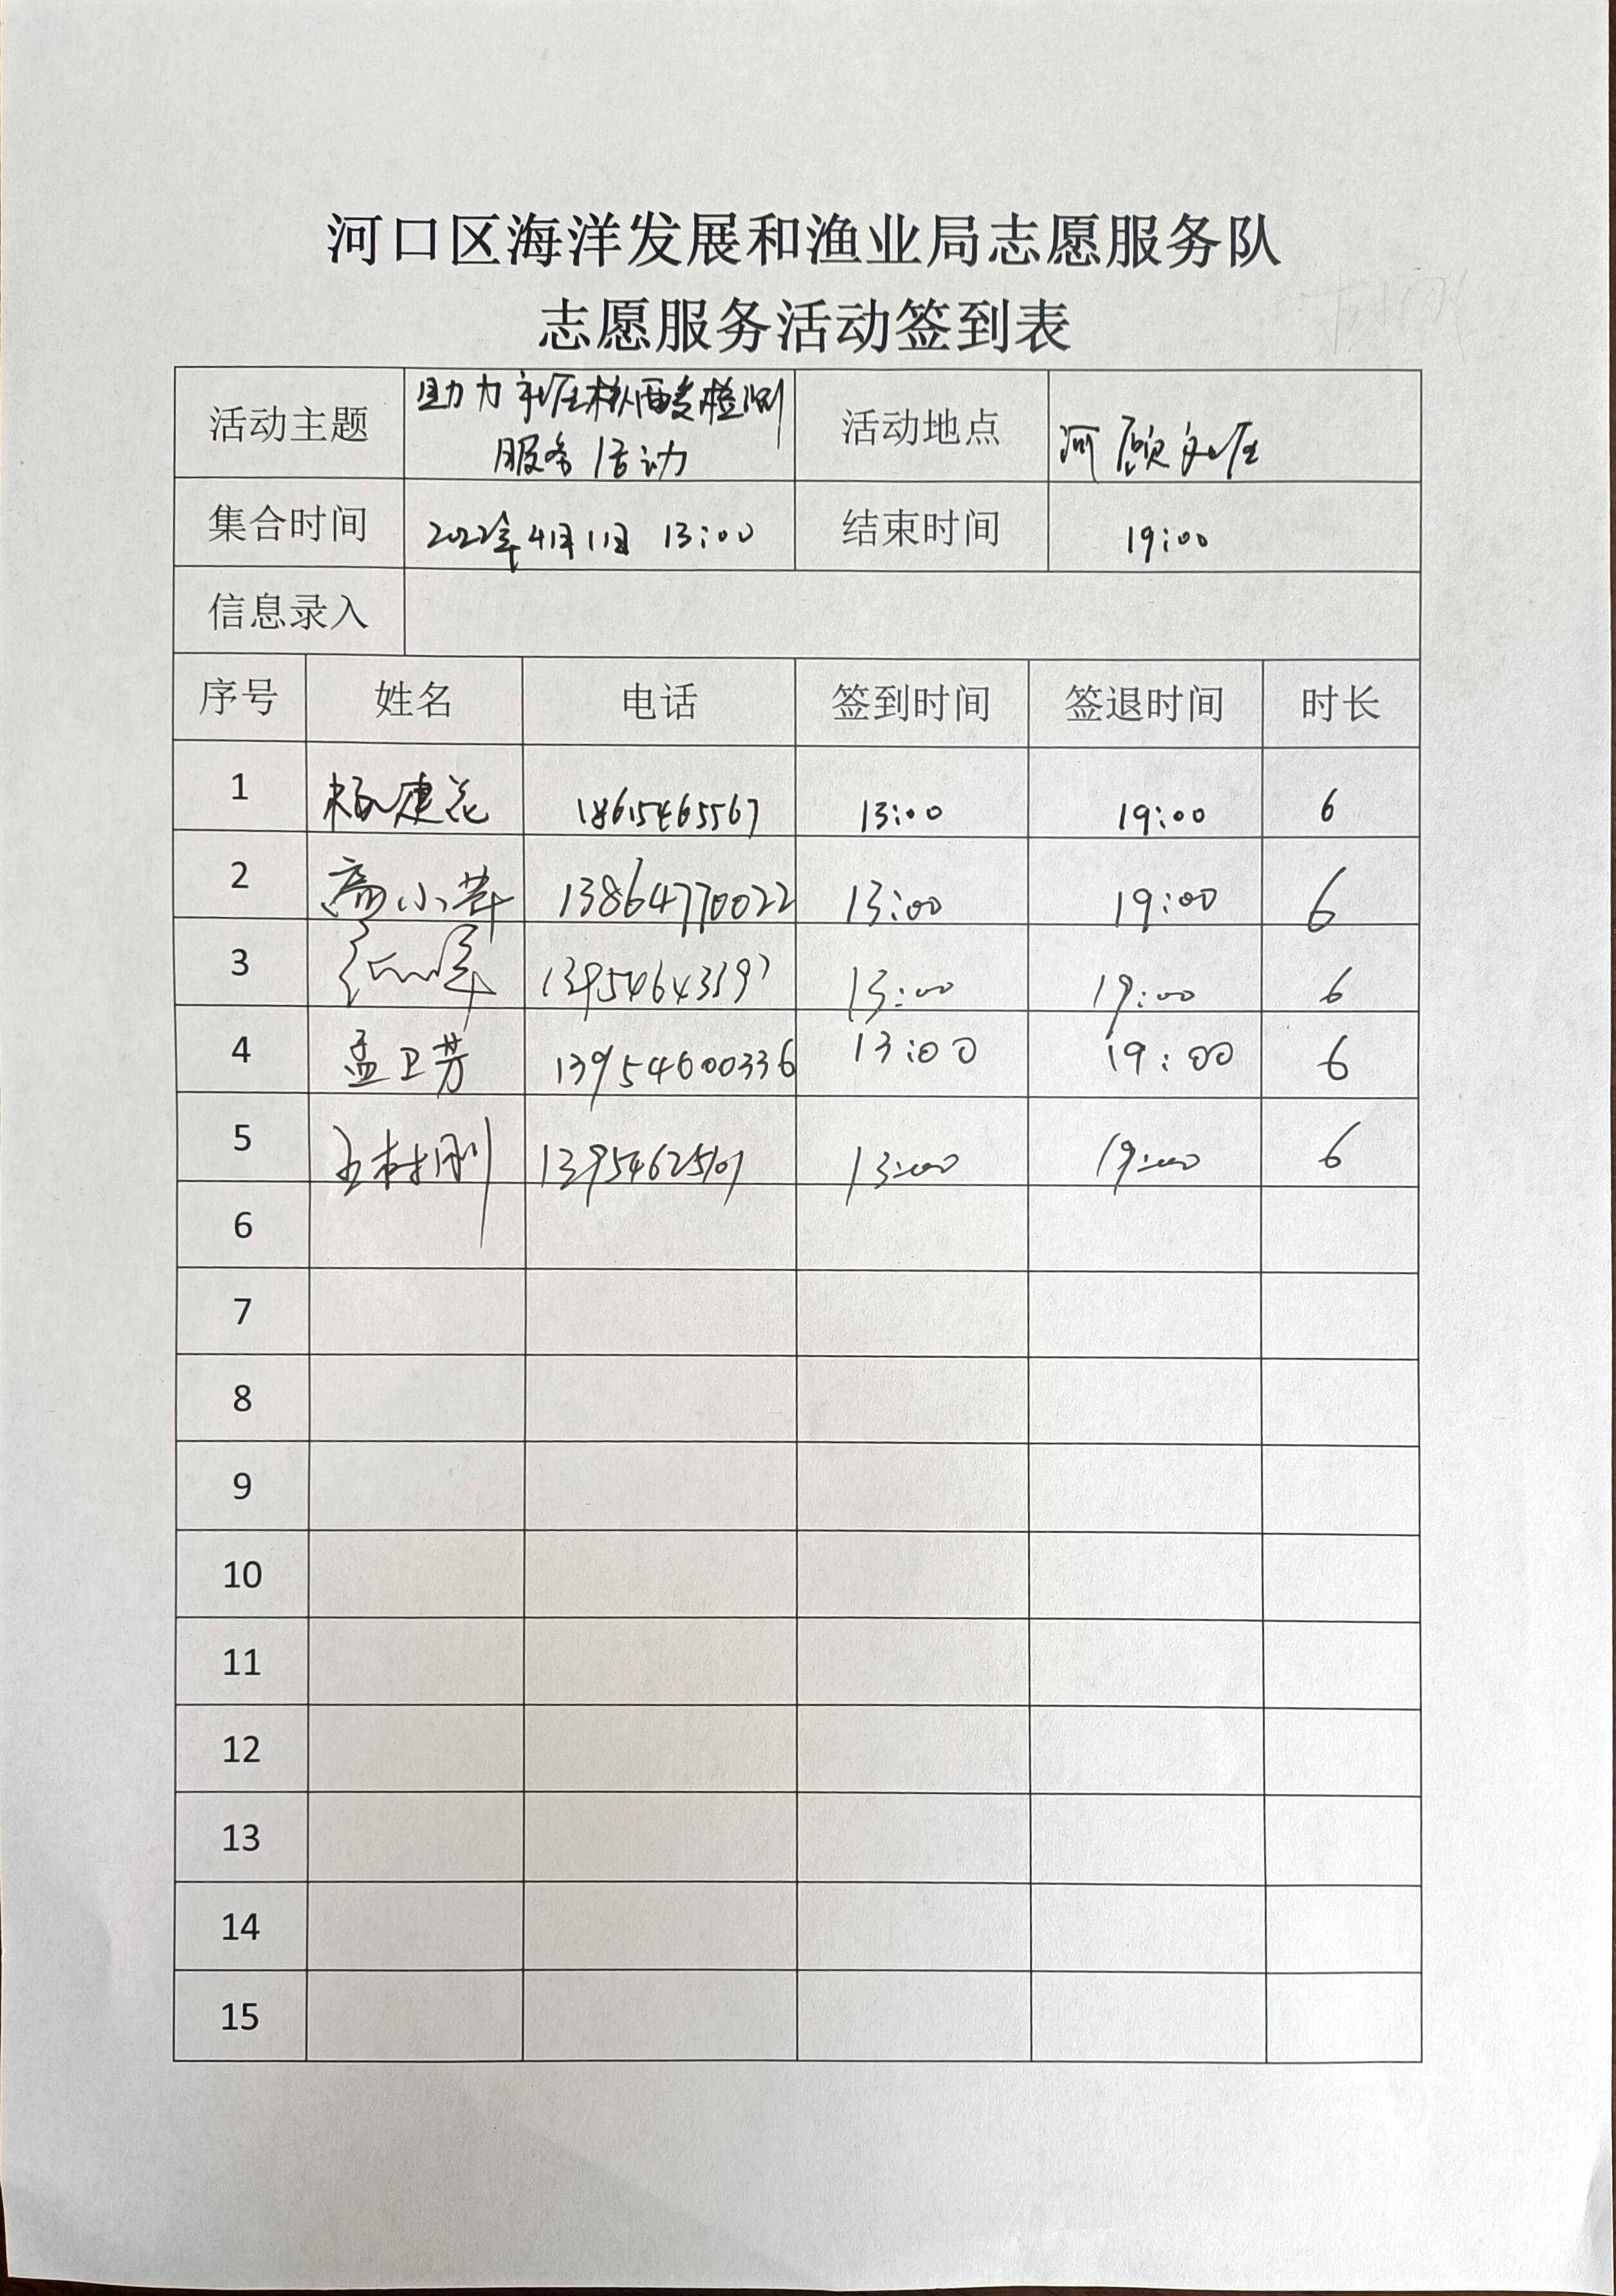 河口区海洋发展和渔业局志愿服务队
志愿服务活动签到表
活动主题 助力社区核酸检测 服务活动 活动地点 河颐社区
集合时间 2022年4月11日 13:00 结束时间 19:00
信息录入
序号 姓名 电话 签到时间 签退时间 时长
1 杨建花 18615465567 13:00 19:00 6
2 小 13864770022 13:00 19:00 6
3 13:00 19:00 6
4 孟卫芳 13954600336 13:00 19:00 6
5 王树刚 13:00 19:00 6
6
7
8
9
10
11
12
13
14
15